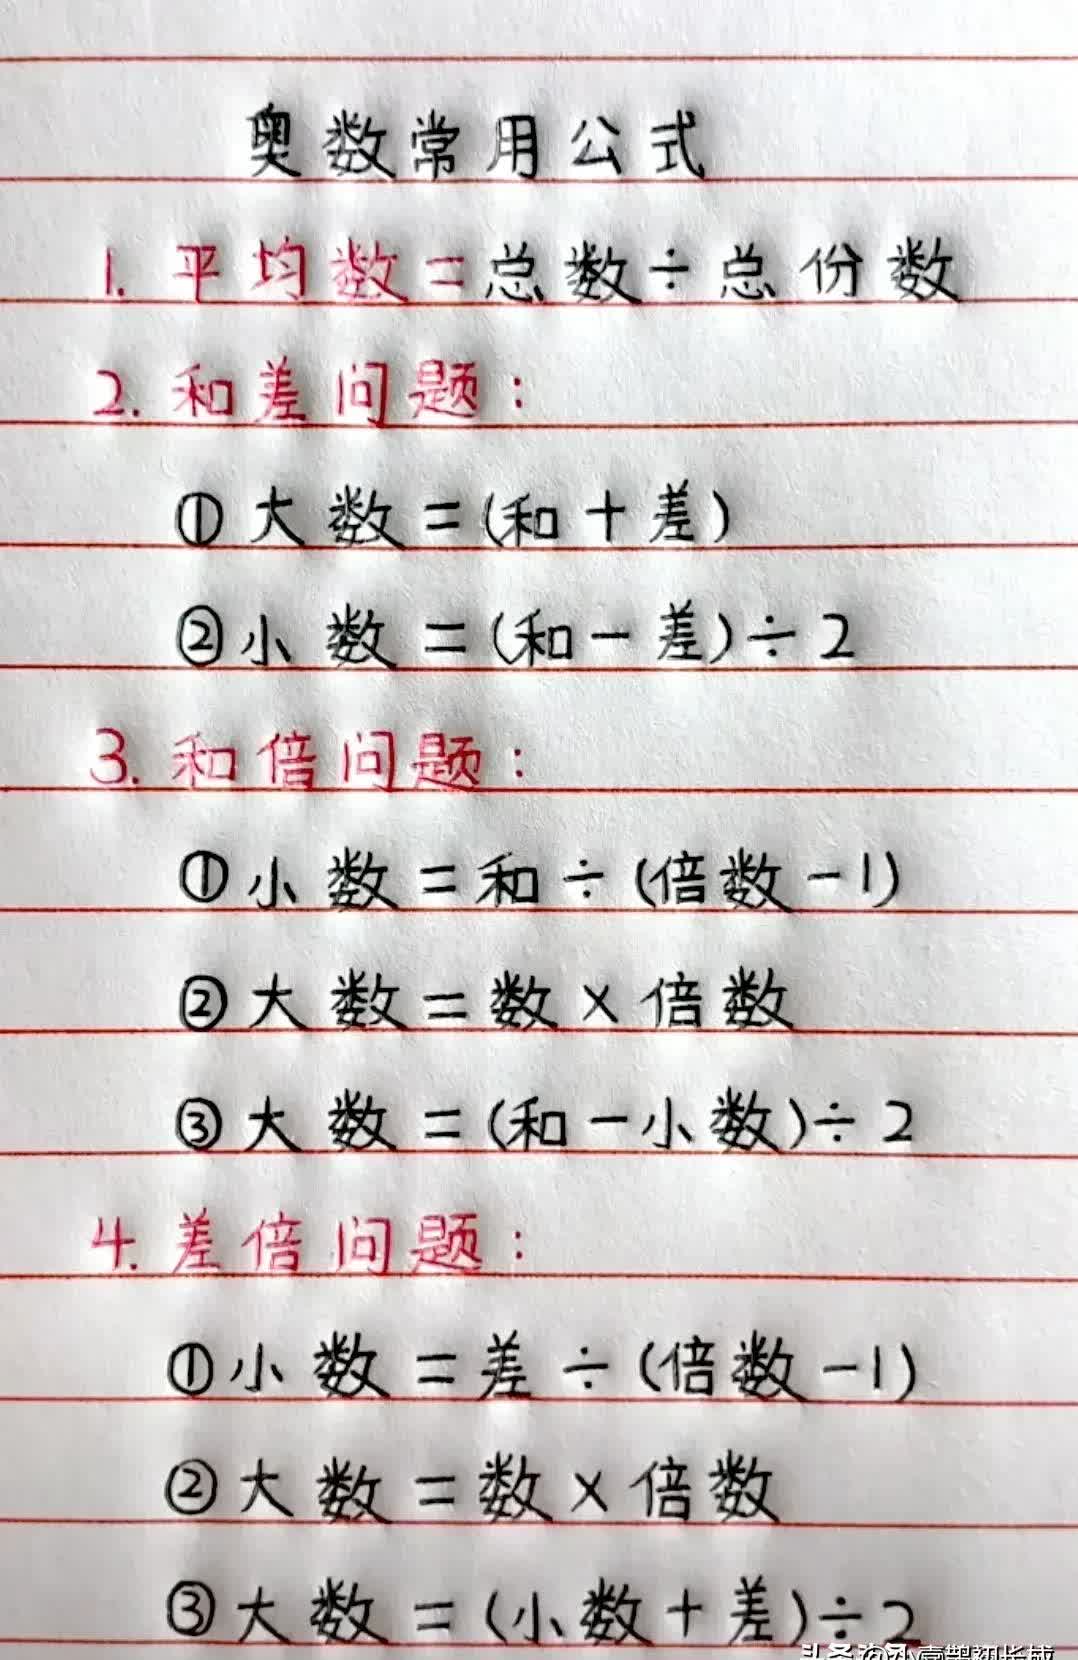 奥数常用公式
1. 平均数=总数÷总份数
2. 和差问题:
①大数=(和+差)
②小数=(和-差)÷2
3. 和倍问题:
①小数=和÷(倍数-1)
②大数=数×倍数
③大数=(和-小数)÷2
4. 差倍问题:
①小数=差÷(倍数-1)
②大数=数×倍数
③大数=(小数+差)÷2